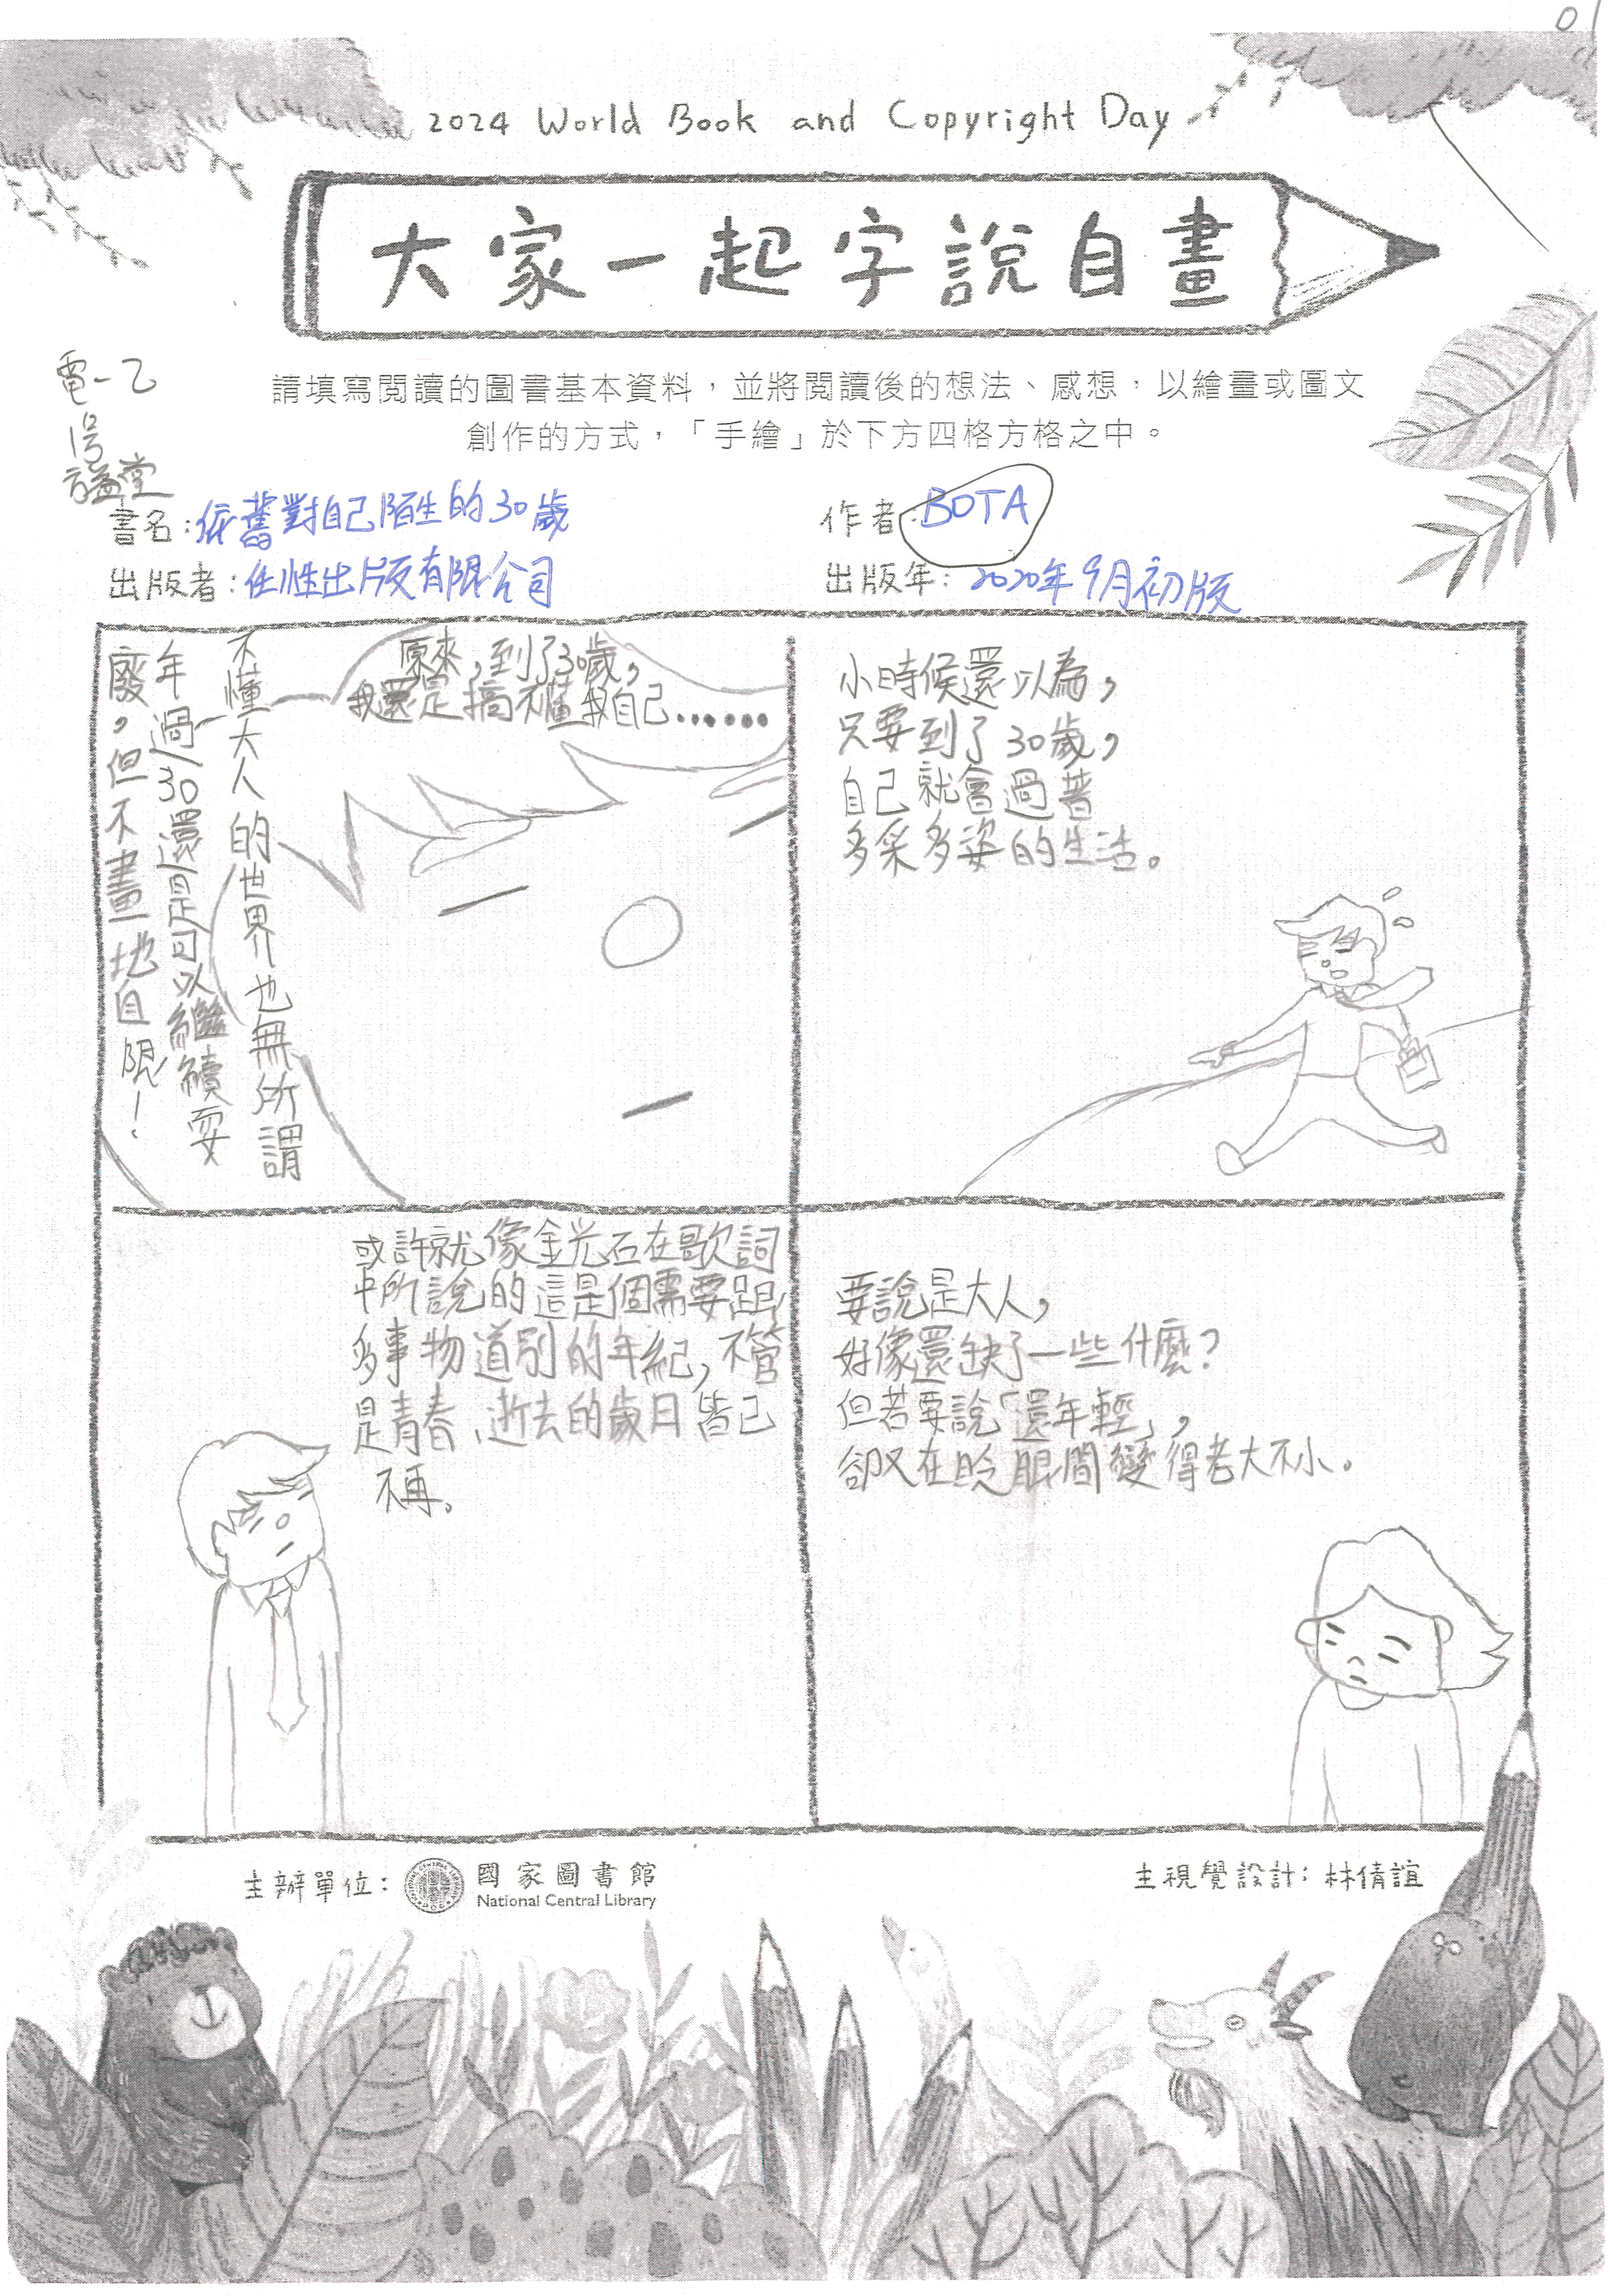 01
2024 World Book and Copyright Day
大家一起字說自畫
請填寫閱讀的圖書基本資料，並將閱讀後的想法、感想，以繪畫或圖文
創作的方式，「手繪」於下方四格方格之中。
電一乙
1号
書名：依舊對自己陌生的30歲
作者：BOTA
出版者：任性出版有限公司
出版年：2020年9月初版
原來，到了30歲，
我還是搞不懂我自己......
不懂大人的世界也無所謂
年過30還是可以繼續耍
廢，但不畫地自限！
小時候還以為，
只要到了30歲，
自己就會過著
多采多姿的生活。
或許就像金光石在歌詞
中所說的這是個需要跟
多事物道別的年紀，不管
是青春、逝去的歲月皆已
不再。
要說是大人，
好像還缺了一些什麼？
但若要說「還年輕」，
卻又在眨眼間變得老大不小。
主辦單位：
國家圖書館
National Central Library
主視覺設計：林倩誼